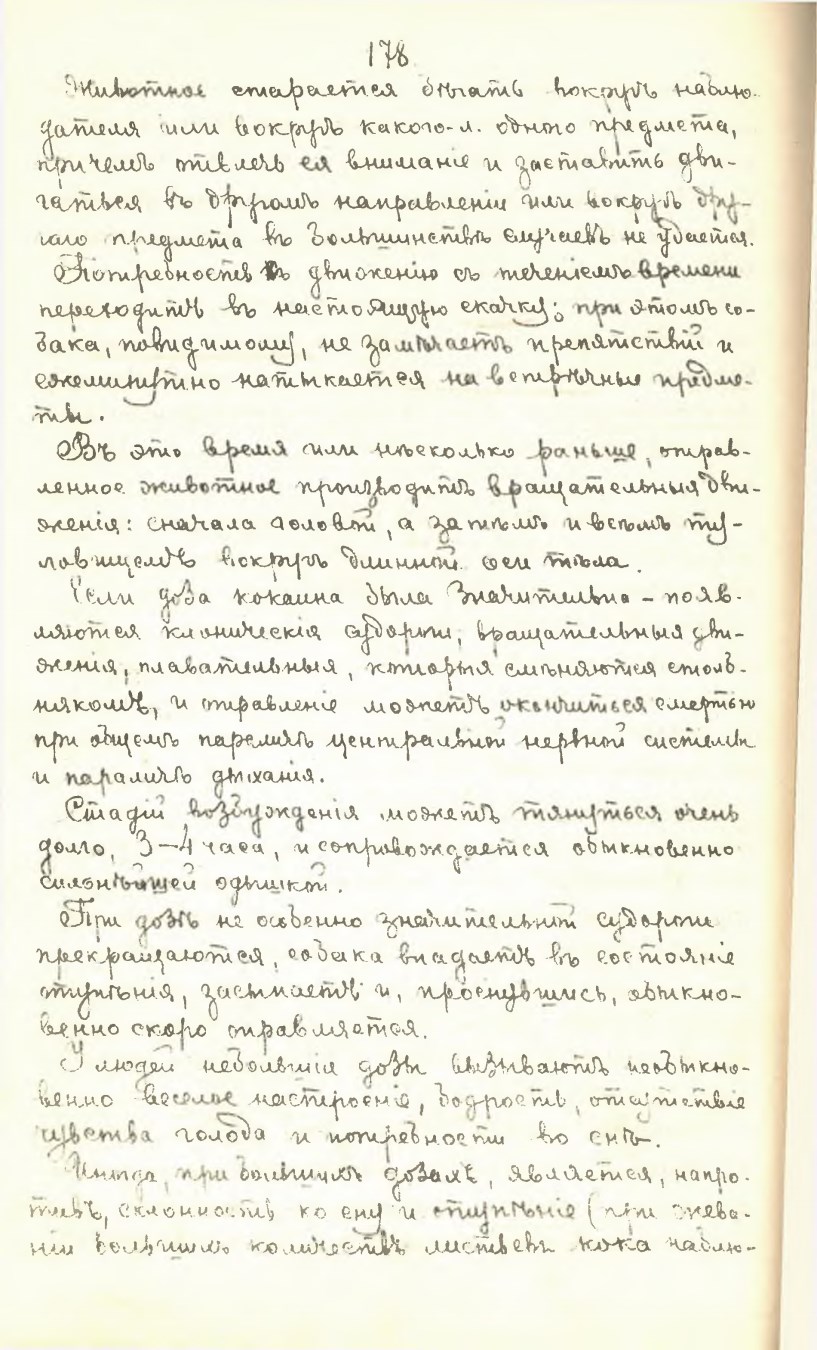 178
Животное старается бѣгать вокругъ наблю-
дателя или вокругъ какого-л. одного предмета,
причемъ отвлечь ея вниманіе и заставить дви-
гаться въ другомъ направленіи или вокругъ дру-
гаго предмета въ большинствѣ случаевъ не удается.
Потребность къ движенію съ теченіемъ времени
переходитъ въ настоящую скачку; при этомъ со-
бака, повидимому, не замѣчаетъ препятствій и
ежеминутно натыкается на встрѣчные предме-
ты.
Въ это время или нѣсколько раньше, отрав-
ленное животное производитъ вращательныя дви-
женія: сначала головой, а затѣмъ и всѣмъ ту-
ловищемъ вокругъ длинной оси тѣла.
Если доза кокаина была значительна – появ-
ляются клоническія судороги, вращательныя дви-
женія, плавательныя, которыя смѣняются столб-
някомъ, и отравленіе можетъ окончиться смертью
при общемъ параличѣ центральной нервной системы
и параличѣ дыханія.
Стадій возбужденія можетъ тянуться очень
долго, 3–4 часа, и сопровождается обыкновенно
сильнѣйшей одышкой.
При дозѣ не особенно значительной судороги
прекращаются, собака впадаетъ въ состояніе
отупѣнія, засыпаетъ и, проснувшись, обыкно-
венно скоро оправляется.
У людей небольшія дозы вызываютъ необыкно-
венно веселое настроеніе, бодрость, отсутствіе
чувства голода и потребности во снѣ.
Иногда, при большихъ дозахъ, является, напро-
тивъ, склонность ко сну и отупѣніе (при жева-
ніи большихъ количествъ листьевъ кока наблю-